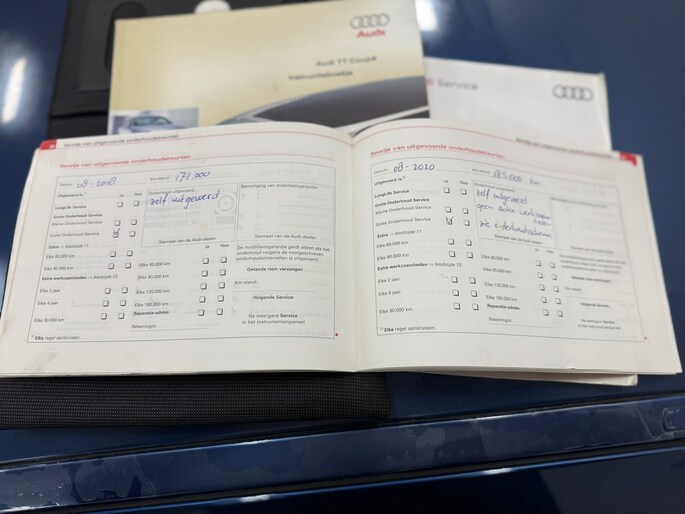 Audi
Audi TT Coupé
Instructieboekje
Service
Bewijs van uitgevoerde onderhoudsbeurten
Bewijs van uitgevoerde onderhoudsbeurten
Datum: 08-2018 Km-stand: 171.000
Uitgevoerd is:
Ja Nee
LongLife Service
Grote Onderhoud Service
Kleine Onderhoud Service
Grote Onderhoud Service
Extra → bladzijde 11
Ja Nee
Elke 60.000 km
Elke 90.000 km
Elke 60.000 km
Elke 90.000 km
Extra werkzaamheden → bladzijde 12
Elke 2 jaar
Elke 120.000 km
Elke 4 jaar
Elke 180.000 km
Elke 30.000 km
Reparatie-advies:
Rekeningnr.
Elke regel aankruisen.
zelf uitgevoerd
Stempel van de Audi-dealer
Bevestiging van mobiliteitsgarantie
Stempel van de Audi-dealer
De mobiliteitsgarantie geldt alleen als het
onderhoud volgens de voorgeschreven
onderhoudsintervallen is uitgevoerd.
Getande riem vervangen
Km-stand:
Volgende Service
Na weergave Service
in het instrumentenpaneel
Bewijs van uitgevoerde onderhoudsbeurten
Datum: 08-2020 Km-stand: 185.000 km
Uitgevoerd is:
Ja Nee
LongLife Service
Grote Onderhoud Service
Kleine Onderhoud Service
Grote Onderhoud Service
Extra → bladzijde 11
Ja Nee
Elke 60.000 km
Elke 90.000 km
Extra werkzaamheden → bladzijde 12
Elke 2 jaar
Elke 120.000 km
Elke 4 jaar
Elke 180.000 km
Elke 30.000 km
Reparatie-advies:
Rekeningnr.
Elke regel aankruisen.
zelf uitgevoerd
geen
zie
Stempel van de Audi-dealer
Getande riem vervangen
Volgende Service
Na weergave Service
in het instrumentenpaneel